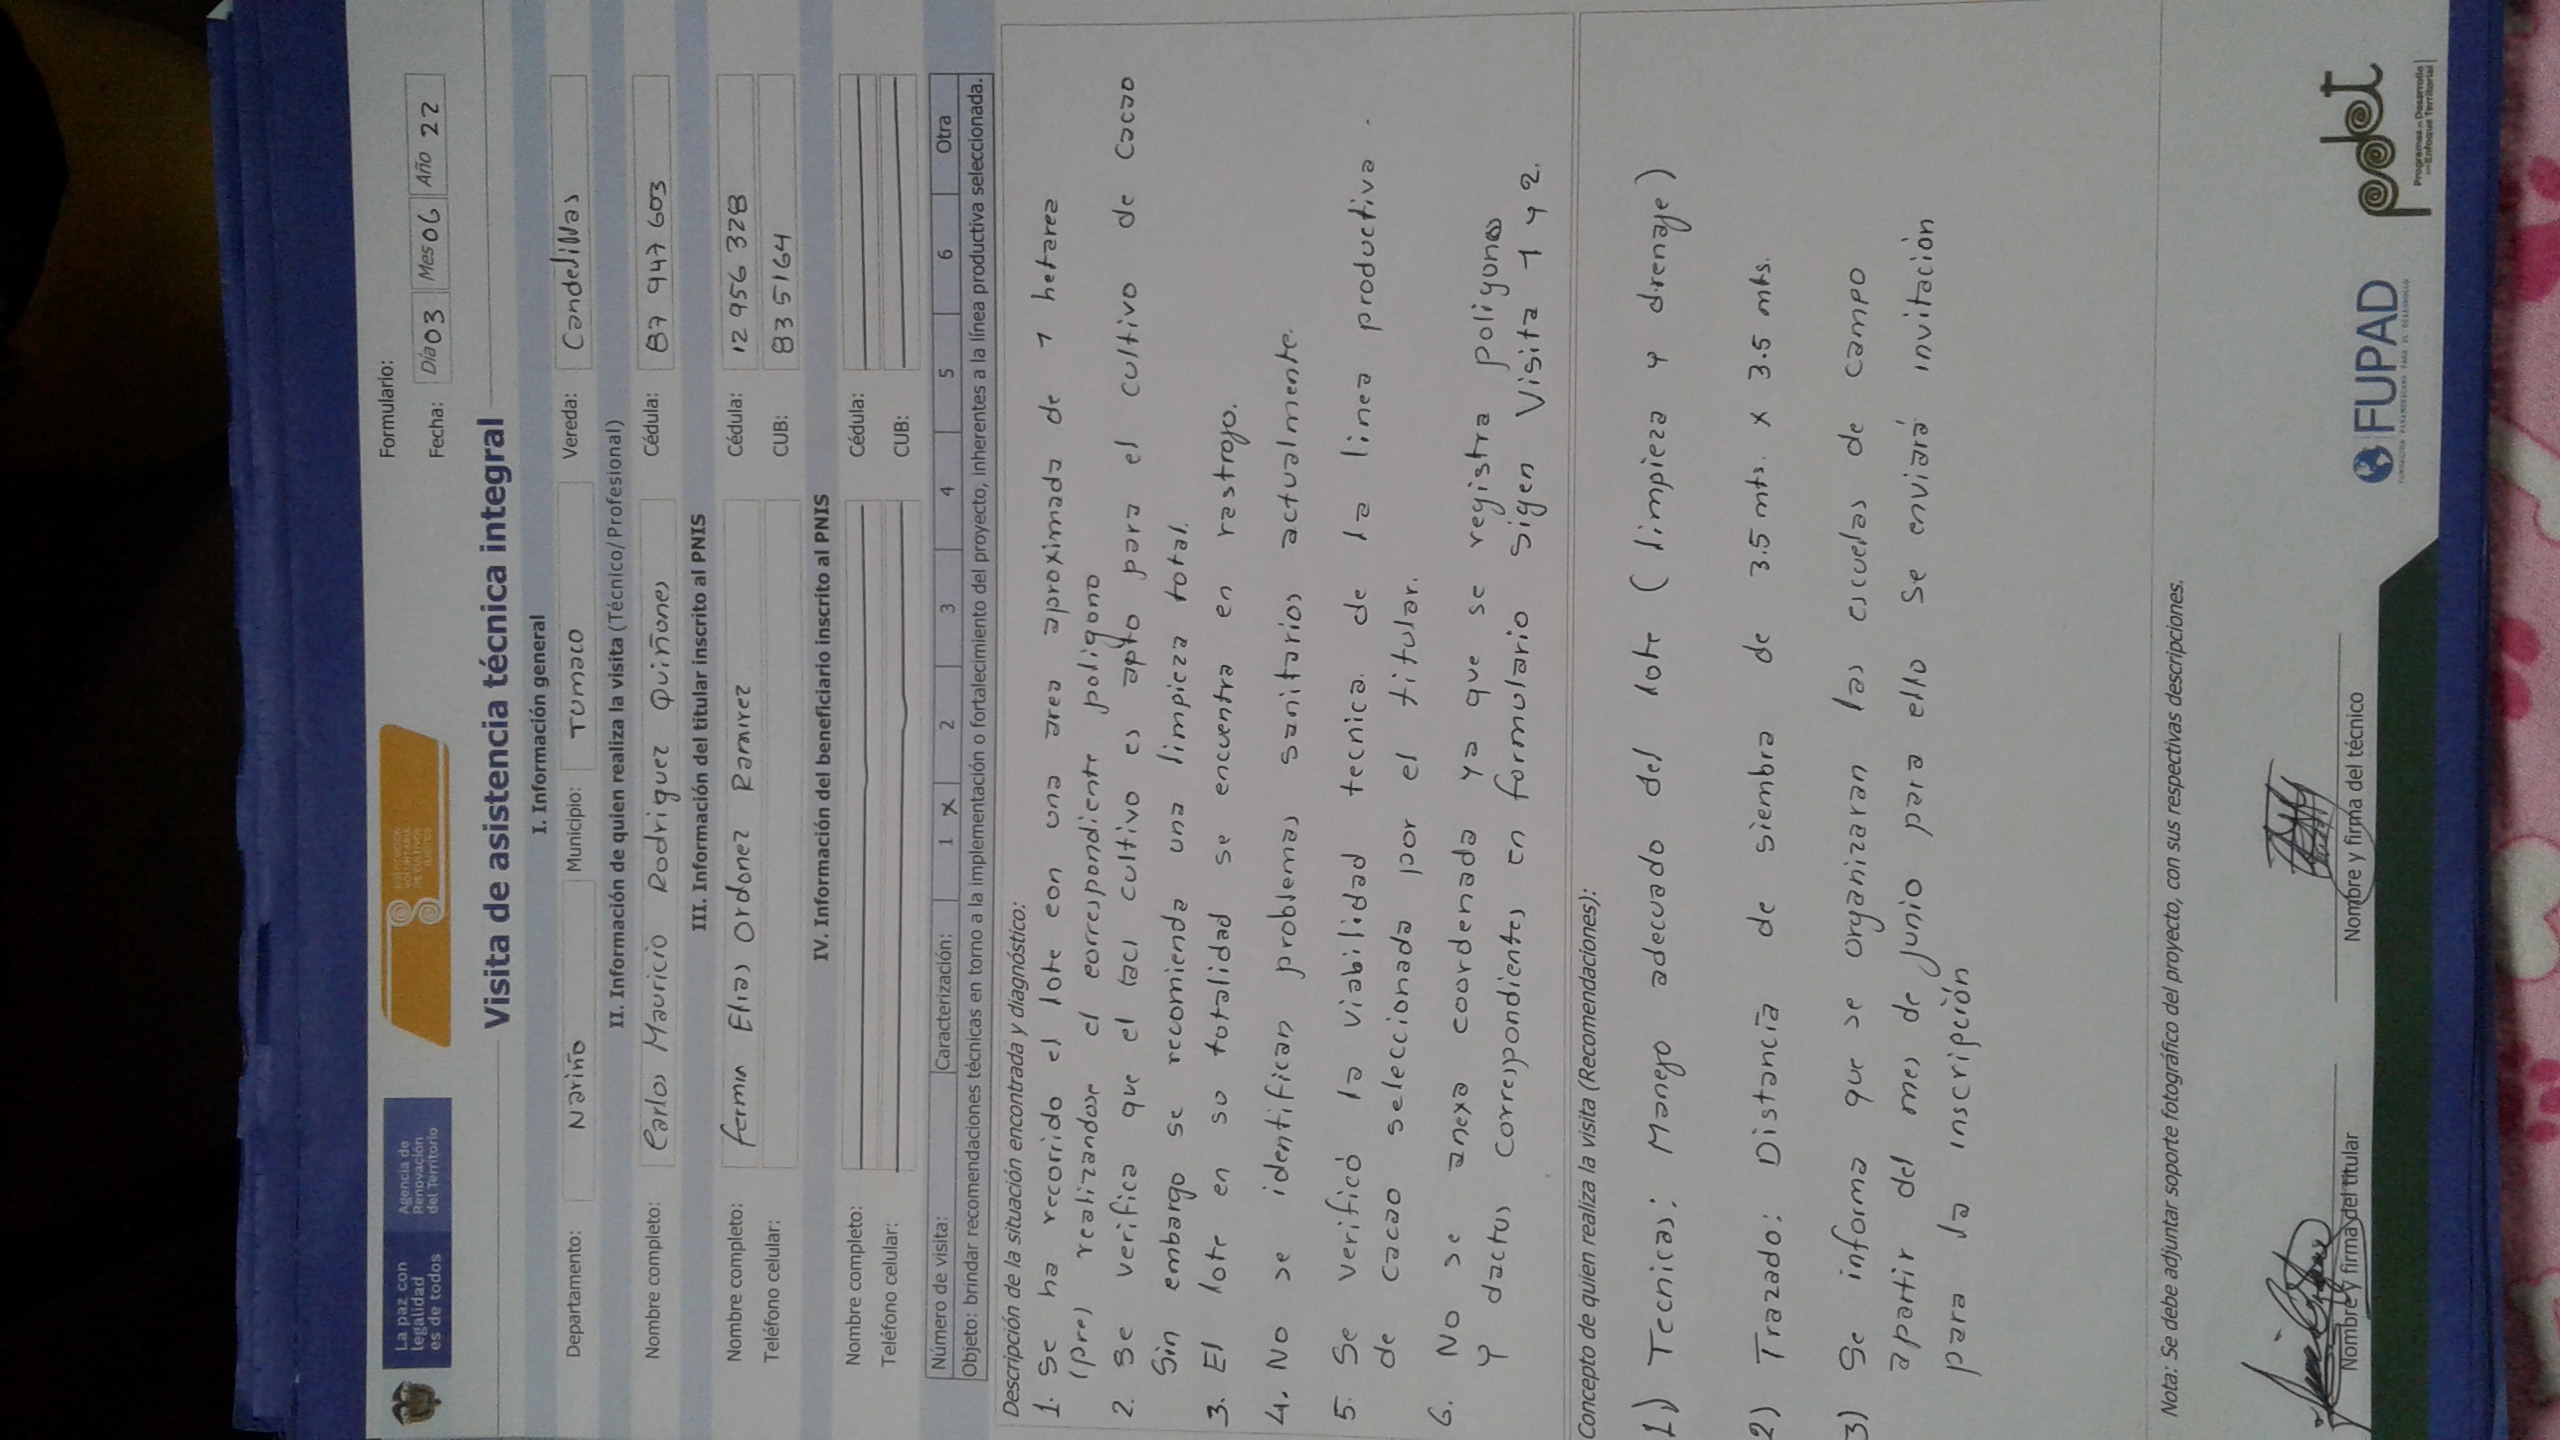 La paz con
legalidad
es de todos
Agencia de
Renovación
del Territorio
SUSTITUCIÓN
VOLUNTARIA
DE CULTIVOS
ILÍCITOS
Formulario:
Fecha: Día 03 Mes 06 Año 22
Visita de asistencia técnica integral
I. Información general
Departamento: Nariño Municipio: Tumaco Vereda: Candelillas
II. Información de quien realiza la visita (Técnico/Profesional)
Nombre completo: Carlos Mauricio Rodriguez Quiñones Cédula: 87 947 603
III. Información del titular inscrito al PNIS
Nombre completo: Fermin Elias Ordonez Ramirez Cédula: 12 956 328
Teléfono celular: CUB: 83 5164
IV. Información del beneficiario inscrito al PNIS
Nombre completo: Cédula:
Teléfono celular: CUB:
Número de visita: Caracterización: 1 X 2 3 4 5 6 Otra
Objeto: brindar recomendaciones técnicas en torno a la implementación o fortalecimiento del proyecto, inherentes a la línea productiva seleccionada.
Descripción de la situación encontrada y diagnóstico:
1. Se ha recorrido el lote con una area aproximada de 1 hetarea
(pre) realizandose el correspondiente poligono
2. Se verifica que el (ac) cultivo es apto para el cultivo de cacao
Sin embargo se recomienda una limpieza total.
3. El lote en so totalidad se encuentra en rastrojo.
4. No se identifican problemas sanitarios actualmente.
5. Se verificó la viabilidad tecnica de la linea productiva.
de cacao seleccionada por el titular.
6. No se anexa coordenada ya que se registra poligonos
y dactus correspondientes en formulario sigen Visita 1 y 2.
Concepto de quien realiza la visita (Recomendaciones):
1) Tecnicas: Manejo adecuado del lote (limpieza y drenaje)
2) Trazado: Distancia de siembra de 3.5 mts. x 3.5 mts.
3) Se informa que se organizaran las escuelas de campo
apartir del mes de junio para ello se enviará invitación
para la inscripción
Nota: Se debe adjuntar soporte fotográfico del proyecto, con sus respectivas descripciones.
Nombre y firma del titular
Nombre y firma del técnico
FUPAD
FUNDACIÓN PANAMERICANA PARA EL DESARROLLO
pdet
Programas de Desarrollo
con Enfoque Territorial